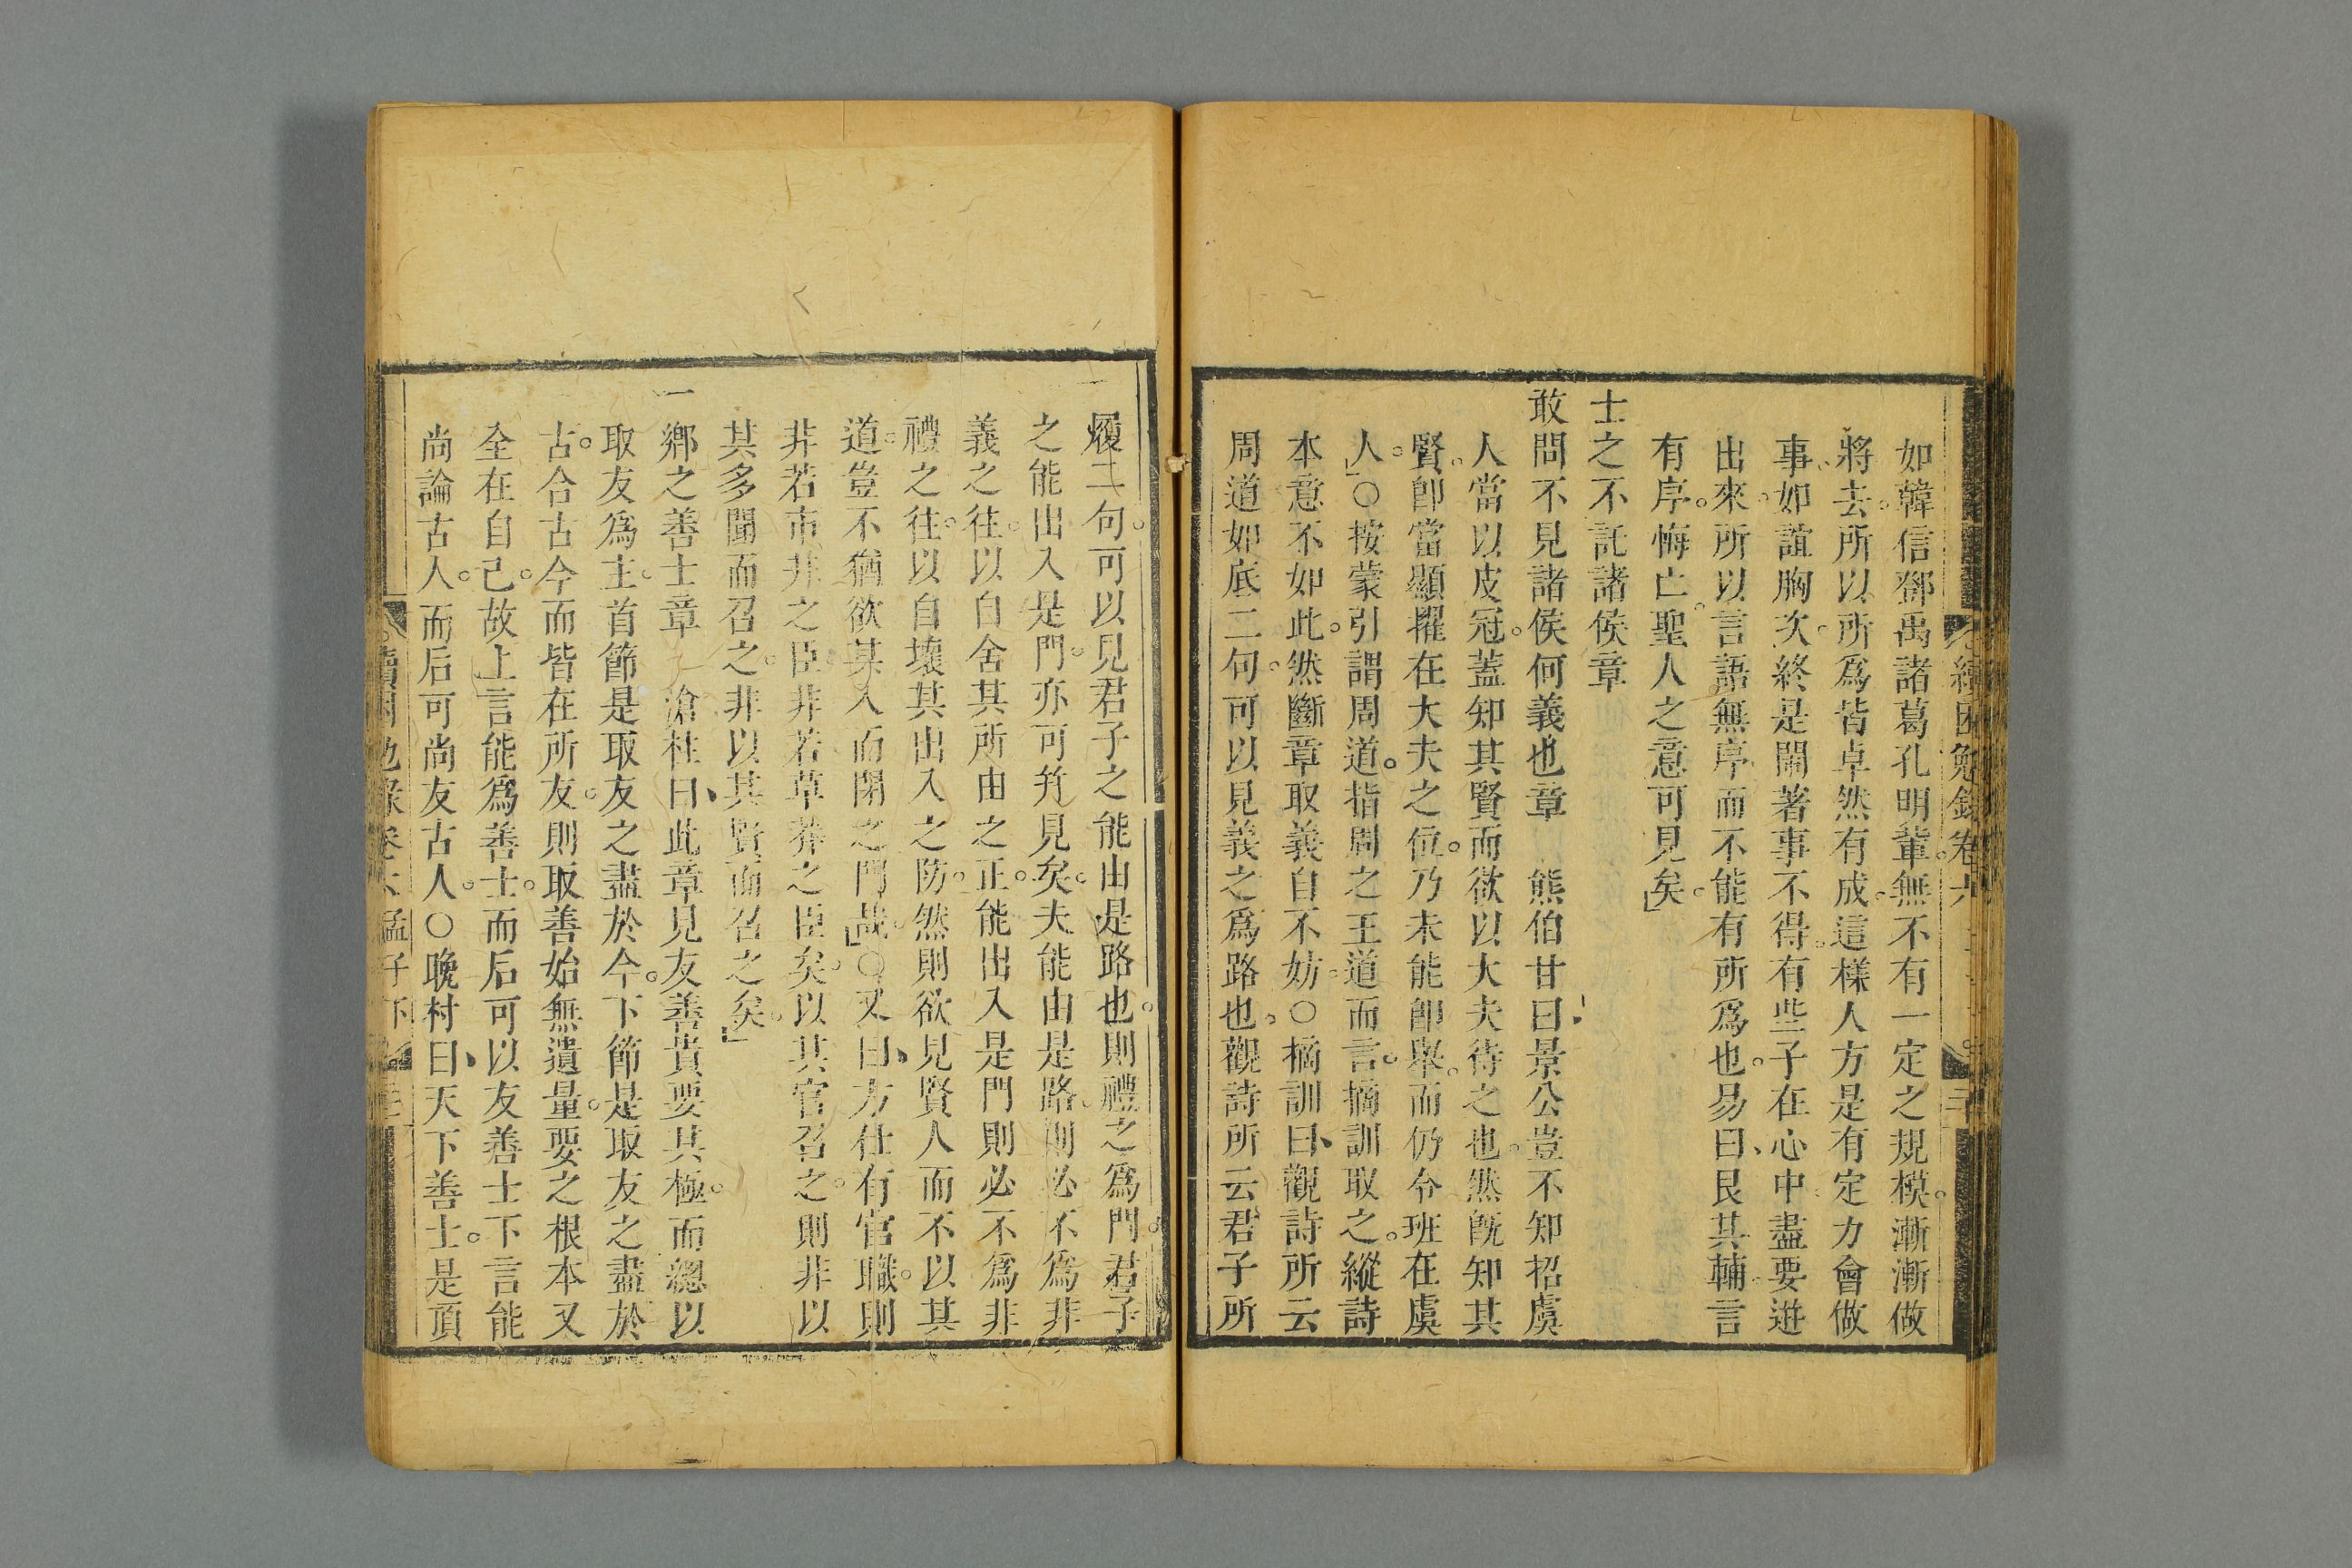 續困勉錄卷六
如韓信鄧禹諸葛孔明輩。無不有一定之規模。漸漸做
將去。所以所爲皆卓然有成。這樣人方是有定力會做
事。如誼胸次。終是鬧著事不得。有些子在心中。盡要迸
出來。所以言語無序。而不能有所爲也。易曰、艮其輔。言
有序。悔亡。聖人之意可見矣。」
士之不託諸侯章
敢問不見諸侯何義也章 熊伯甘曰、景公豈不知招虞
人當以皮冠。蓋知其賢而欲以大夫待之也。然旣知其
賢。卽當顯擢在大夫之位。乃未能卽舉。而仍令班在虞
人。」○按蒙引謂周道。指周之王道而言。摘訓取之。縱詩
本意不如此。然斷章取義自不妨。○摘訓曰、觀詩所云
周道如底二句。可以見義之爲路也。觀詩所云君子所
履二句。可以見君子之能由是路也。則禮之爲門。君子
之能出入是門。亦可竝見矣。夫能由是路。則必不爲非
義之往。以自舍其所由之正。能出入是門則必不爲非
禮之往。以自壞其出入之防。然則欲見賢人而不以其
道。豈不猶欲其入而閉之門哉。」○又曰、方仕有官職。則
非若市井之臣。非若草莽之臣矣。以其官召之。則非以
其多聞而召之。非以其賢而召之矣。」
一鄉之善士章 滄柱曰、此章見友善貴要其極。而總以
取友爲主。首節是取友之盡於今。下節是取友之盡於
古。合古今而皆在所友。則取善始無遺量。要之根本又
全在自己。故上言能爲善士。而后可以友善士。下言能
尚論古人。而后可尚友古人。○晚村曰、天下善士。是頂
續困勉錄卷六 孟子下